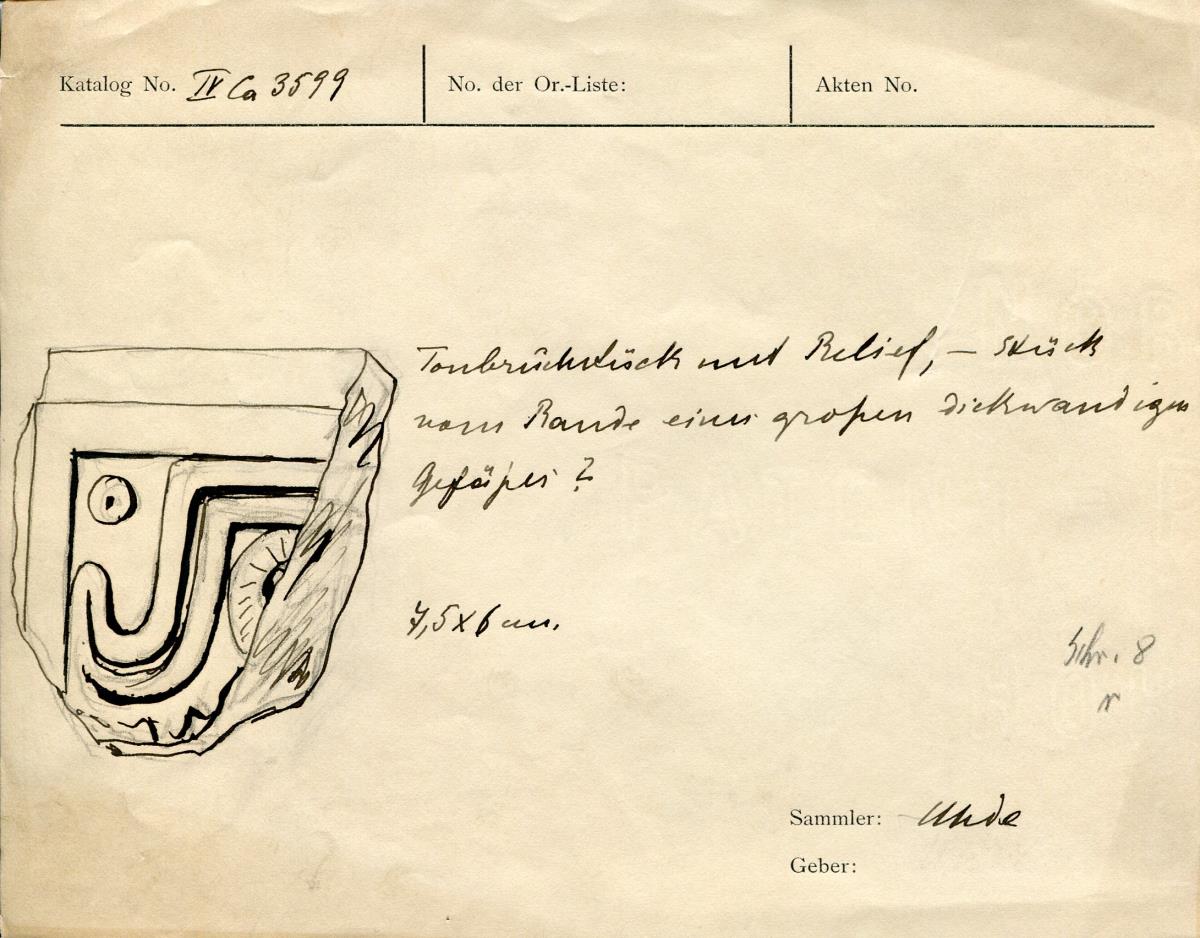 Katalog No. IV Ca 3599
No. der Or.-Liste:
Akten No.
Tonbruchstück mit Relief, – Stück
vom Rande eines großen dickwandigen
Gefäßes?
7,5 x 6 cm.
Schr. 8
r
Sammler: Uhde
Geber: